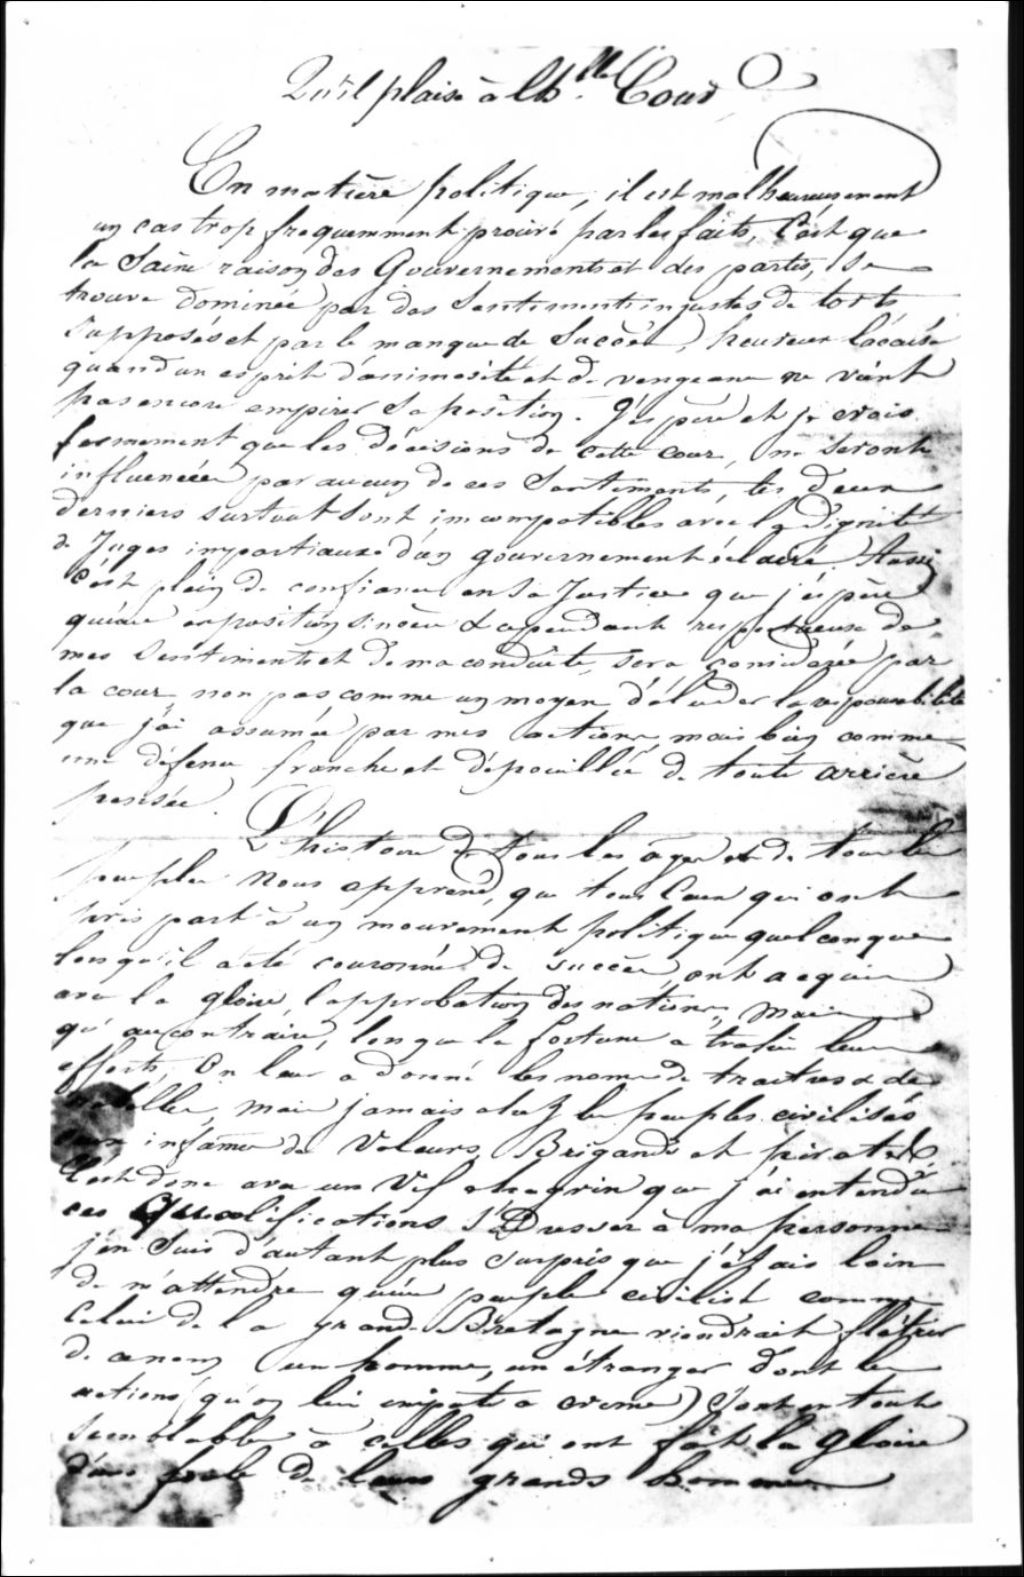 Qu'il plaise à l'h.ble Cour
En matière politique, il est malheureusement
un cas trop frequemment prouvé par les faits, C'est que
la Saine raison des Gouvernements et des partis, Se
trouve Dominée par des Sentiments injustes de torts
Supposés et par le manque de Succès, heureux
quand un esprit d'animosité et de vengeance ne vient
pas encore empirer Sa position. J'espère et je crois
fermement que les décisions de cette cour, ne Seront
influencées par aucun de ces Sentiments, les Deux
derniers surtout Sont imcompatibles avec la Dignité
de Juges impartiaux d'un gouvernement éclairé. Aussi
C'est plein de confiance en Sa Justice que j'éspère
qu'une exposition Sincère & cependant respectueuse de
mes Sentiments et de ma conduite, Sera considérée par
la cour, non pas comme un moyen d'éluder la responsabilité
que j'ai assumée par mes actions mais bien comme
une défense franche et dépouillée de toute arrière
pensée.
L'histoire de tous les âges et de tous les
peuples Nous apprend, que tous Ceux qui ont
pris part à un mouvement politique quelconque
lorsqu'il a été couronné de Succès, ont acquis
avec la gloire, l'approbation des nations, Mais
qu'au contraire, lorsque la fortune a trahi leurs
efforts, On leur a donné les noms de traitres & de
rebelles, Mais jamais chez les peuples civilisés
ceux infames de Voleurs, Brigands et pirates
C'est donc avec un Vif chagrin que j'ai entendu
ces Qualifications S'adresser à ma personne
j'en Suis d'autant plus Surpris que j'étais loin
de m'attendre qu'un peuple civilisé comme
Celui de la grande Bretagne viendrait flétrir
de ce nom un homme, un étranger Dont les
actions (qu'on lui impute a crime) Sont en tout
Semblables à celles qui ont fait la gloire
d'une foule de leurs grands hommes